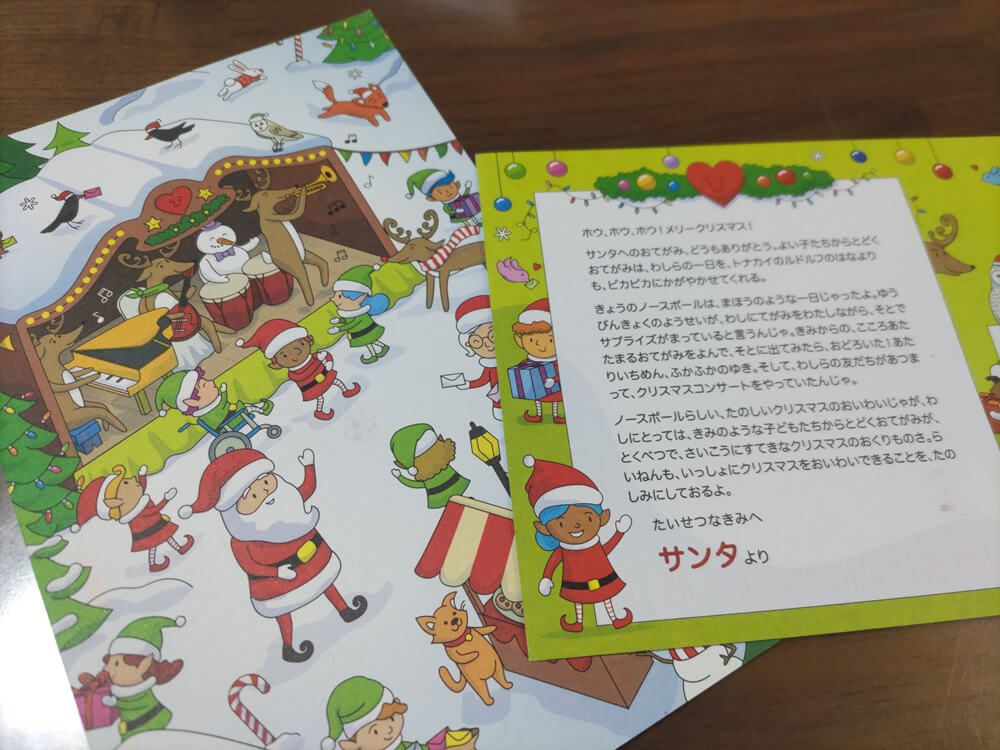 ホウ、ホウ、ホウ！メリークリスマス！
サンタへのおてがみ、どうもありがとう。よい子たちからとどく
おてがみは、わしらの一日を、トナカイのルドルフのはなより
も、ピカピカにかがやかせてくれる。
きょうのノースポールは、まほうのような一日じゃったよ。ゆう
びんきょくのようせいが、わしにてがみをわたしながら、そとで
サプライズがまっていると言うんじゃ。きみからの、こころあた
たまるおてがみをよんで、そとに出てみたら、おどろいた！あた
りいちめん、ふかふかのゆき。そして、わしらの友だちがあつま
って、クリスマスコンサートをやっていたんじゃ。
ノースポールらしい、たのしいクリスマスのおいわいじゃが、わ
しにとっては、きみのような子どもたちからとどくおてがみが、
とくべつで、さいこうにすてきなクリスマスのおくりものさ。ら
いねんも、いっしょにクリスマスをおいわいできることを、たの
しみにしておるよ。
たいせつなきみへ
サンタより